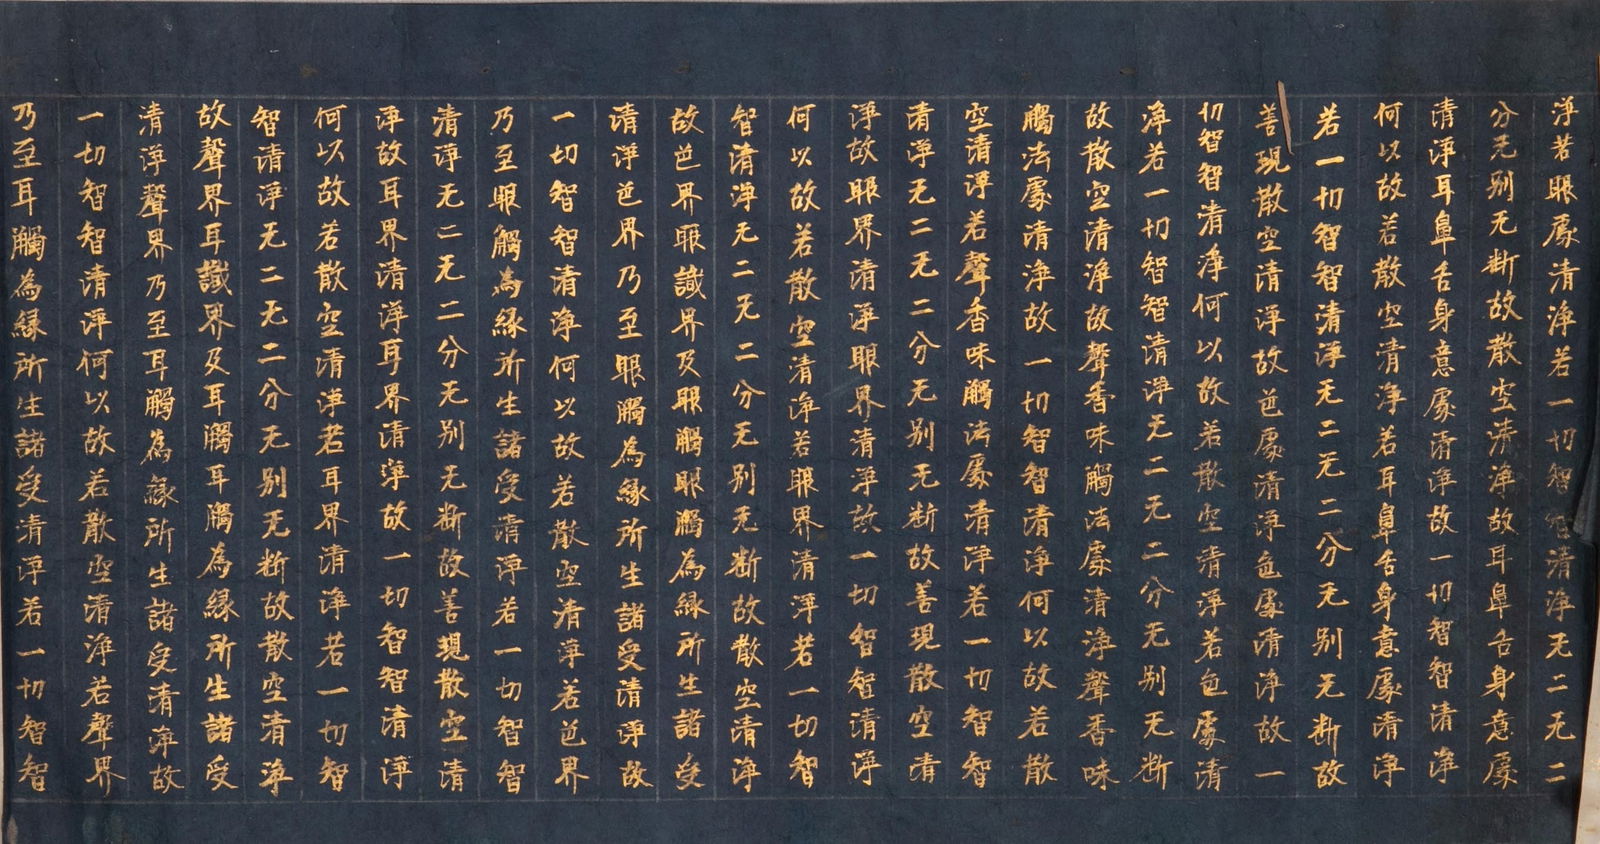 淨若眼處清淨若一切智智清淨无二无二
分无别无断故散空清淨故耳鼻舌身意處
清淨耳鼻舌身意處清淨故一切智智清淨
何以故若散空清淨若耳鼻舌身意處清淨
若一切智智清淨无二无二分无别无断故
善現散空清淨故色處清淨色處清淨故一
切智智清淨何以故若散空清淨若色處清
淨若一切智智清淨无二无二分无别无断
故散空清淨故聲香味觸法處清淨聲香味
觸法處清淨故一切智智清淨何以故若散
空清淨若聲香味觸法處清淨若一切智智
清淨无二无二分无别无断故善現散空清
淨故眼界清淨眼界清淨故一切智智清淨
何以故若散空清淨若眼界清淨若一切智
智清淨无二无二分无别无断故散空清淨
故色界眼識界及眼觸眼觸為緣所生諸受
清淨色界乃至眼觸為緣所生諸受清淨故
一切智智清淨何以故若散空清淨若色界
乃至眼觸為緣所生諸受清淨若一切智智
清淨无二无二分无别无断故善現散空清
淨故耳界清淨耳界清淨故一切智智清淨
何以故若散空清淨若耳界清淨若一切智
智清淨无二无二分无别无断故散空清淨
故聲界耳識界及耳觸耳觸為緣所生諸受
清淨聲界乃至耳觸為緣所生諸受清淨故
一切智智清淨何以故若散空清淨若聲界
乃至耳觸為緣所生諸受清淨若一切智智